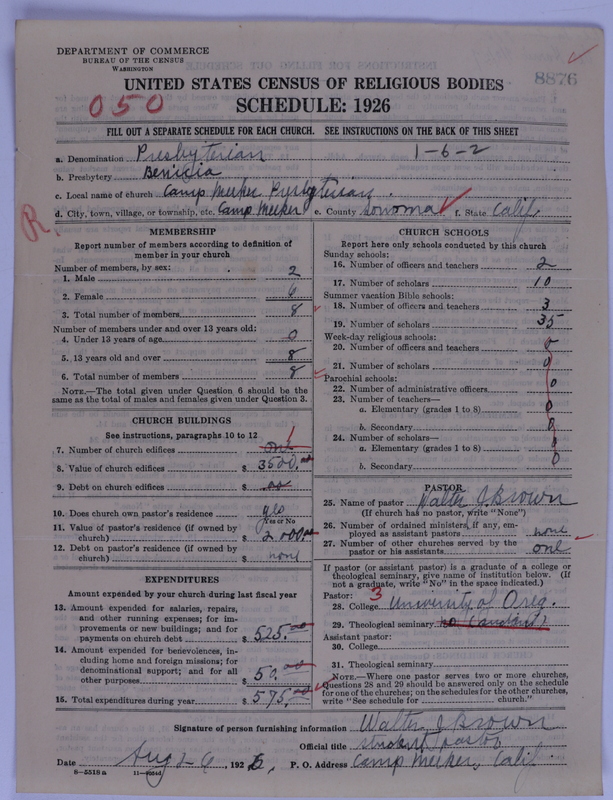 DEPARTMENT OF COMMERCE
BUREAU OF THE CENSUS
WASHINGTON
8876
UNITED STATES CENSUS OF RELIGIOUS BODIES
050
SCHEDULE: 1926
FILL OUT A SEPARATE SCHEDULE FOR EACH CHURCH. SEE INSTRUCTIONS ON THE BACK OF THIS SHEET
a. Denomination Presbyterian 1-6-2
b. Presbytery Benicia
c. Local name of church Camp Meeker Presbyterian
d. City, town, village, or township, etc. Camp Meeker e. County Sonoma f. State Calif.
R
MEMBERSHIP
Report number of members according to definition of member in your church
Number of members, by sex:
1. Male 2
2. Female 6
3. Total number of members 8
Number of members under and over 13 years old:
4. Under 13 years of age 0
5. 13 years old and over 8
6. Total number of members 8
NOTE.—The total given under Question 6 should be the same as the total of males and females given under Question 3.
CHURCH BUILDINGS
See instructions, paragraphs 10 to 12
7. Number of church edifices one 1
8. Value of church edifices $ 3500.00
9. Debt on church edifices $
10. Does church own pastor's residence yes
Yes or No
11. Value of pastor's residence (if owned by church) $ 2000.00
12. Debt on pastor's residence (if owned by church) $ none
EXPENDITURES
Amount expended by your church during last fiscal year
13. Amount expended for salaries, repairs, and other running expenses; for improvements or new buildings; and for payments on church debt $ 525.00
14. Amount expended for benevolences, including home and foreign missions; for denominational support; and for all other purposes $ 50.00
15. Total expenditures during year $ 575.00
CHURCH SCHOOLS
Report here only schools conducted by this church
Sunday schools:
16. Number of officers and teachers 2
17. Number of scholars 10
Summer vacation Bible schools:
18. Number of officers and teachers 3
19. Number of scholars 35
Week-day religious schools:
20. Number of officers and teachers 0
21. Number of scholars 0
Parochial schools:
22. Number of administrative officers 0
23. Number of teachers—
a. Elementary (grades 1 to 8) 0
b. Secondary 0
24. Number of scholars—
a. Elementary (grades 1 to 8) 0
b. Secondary 0
PASTOR
25. Name of pastor Walter J. Brown
(If church has no pastor, write "None")
26. Number of ordained ministers, if any, employed as assistant pastors none
27. Number of other churches served by the pastor or his assistants one
If pastor (or assistant pastor) is a graduate of a college or theological seminary, give name of institution below. (If not a graduate, write "No" in the space indicated.)
Pastor: 3
28. College University of Oreg.
29. Theological seminary no (student)
Assistant pastor:
30. College
31. Theological seminary
NOTE.—Where one pastor serves two or more churches, Questions 28 and 29 should be answered only on the schedule for one of the churches; on the schedules for the other churches, write "See schedule for church."
Signature of person furnishing information Walter J Brown
Official title student pastor
Date Aug 26, 1926, P. O. Address Camp Meeker, Calif.
8—5518a 11—9264d